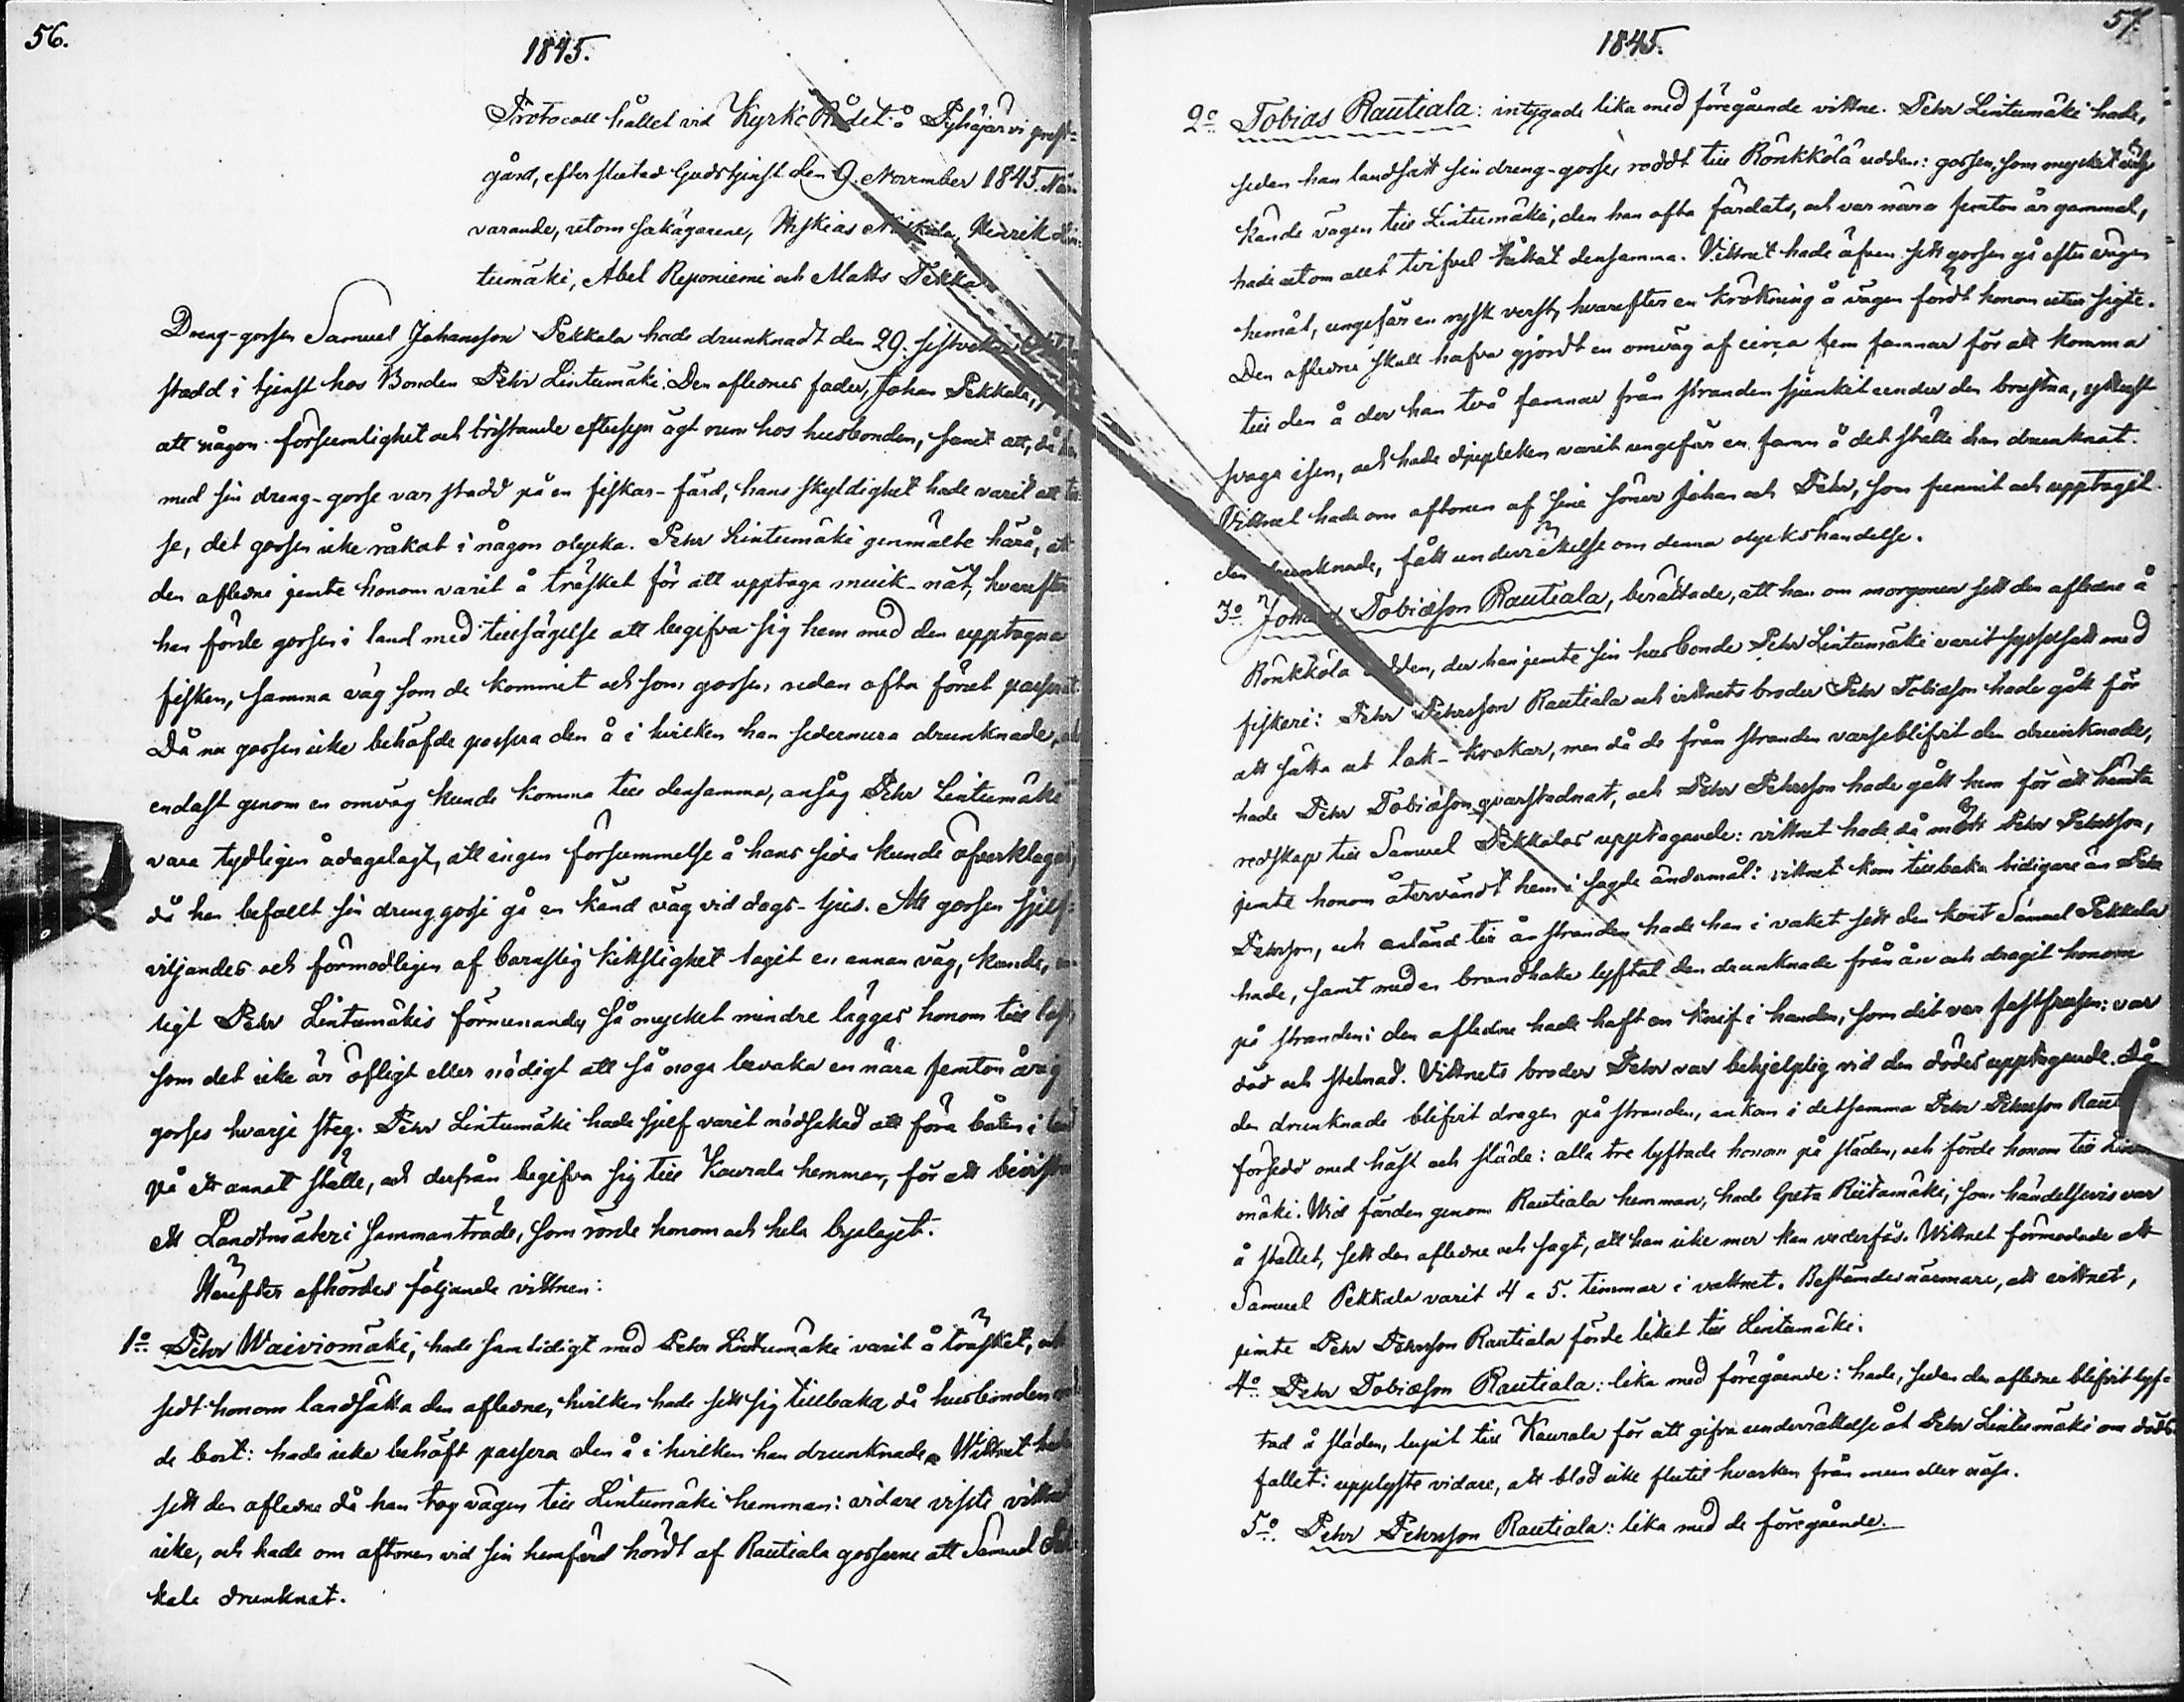 56.
1845.
Protocoll hållet vid Kyrko Rådet å Pyhäjärvi prest-
gård, efter slutad Gudstjenst den 9. November 1845. När-
varande, utom sakägarene, Henrik Lin-
tumäki, Abel Reponiemi och Matts Tekka
Dreng-gossen Samuel Johansson Pekkala hade drunknadt den 29. sistvekne
stadd i tjenst hos Bonden Pehr Lintumäki. Den aflednes fader, Johan Pekkala,
att någon försumlighet och bristande eftersyn ägt rum hos husbonden, samt att, då han
med sin dreng-gosse var stadd på en fiskar-färd, hans skyldighet hade varit att till
se, det gossen icke råkat i någon olycka. Pehr Lintumäki genmälte härå, att
den afledne jemte honom varit å träsket för att upptaga muik-nät, hvarefter
han förde gossen i land med tillsägelse att begifva sig hem med den upptagna
fisken, samma väg som de kommit och som gossen redan ofta förut passerat.
Då nu gossen icke behöfde passera den å i hvilken han sedermera drunknade, och
endast genom en omväg kunde komma till densamma, ansåg Pehr Lintumäki
vara tydligen ådagalagt, att ingen försummelse å hans sida kunde öfverklagas,
då han befallt sin drenggosse gå en känd väg vid dags-ljus. Att gossen sjelf-
viljandes och förmodligen af barnslig kitslighet tagit en annan väg, kunde, en-
ligt Pehr Lintumäkis förmenande, så mycket mindre läggas honom till last,
som det icke är öfligt eller nödigt att så noga bevaka en nära femton årig
gosses hvarje steg. Pehr Lintumäki hade sjelf varit nödsakad att föra båten i land
på ett annat ställe, och derfrån begifva sig till Kaurala hemman, för att bevista
ett Landtmäteri sammanträde, som rörde honom och hela byalaget.
Härefter afhördes följande vittnen:
1o Pehr Waiviomäki, hade samtidigt med Pehr Lintumäki varit å träsket, och
sedt honom landsätta den afledne, hvilken hade sett sig tillbaka då husbonden rod-
de bort: hade icke behöft passera den å i hvilken han drunknade. Wittnet hade
sett den afledne då han tog vägen till Lintumäki hemman: vidare visste vittnet
icke, och hade om aftonen vid sin hemfärd hördt af Rautiala gossarne att Samuel Pek-
kala drunknat.
57.
1845.
2o Tobias Rautiala: intygade lika med föregående vittne. Pehr Lintumäki hade,
sedan han landsatt sin dreng-gosse, roddt till Rönkkölä udden: gossen, som mycket väl
kände vägen till Lintumäki, den han ofta färdats, och var nära femton år gammal,
hade utom allt tvifvel hittat densamma. Vittnet hade äfven sett gossen gå efter vägen
hemåt, ungefär en rysk verst, hvarefter en krökning å vägen fördt honom utur sigte.
Den afledne skall hafva gjordt en omväg af circa fem famnar för att komma
till den å der han två famnar från stranden sjunkit under den brustna, ytterst
svaga isen, och hade djupleken varit ungefär en famn å det ställe han drunknat.
Vittnet hade om aftonen af sine söner Johan och Pehr, som funnit och upptagit
den drunknade, fått underrättelse om denna olyckshändelse.
3o Johan Tobiæson Rautiala, berättade, att han om morgonen sett den afledne å
Rönkkölä udden, der han jemte sin husbonde Pehr Lintumäki varit sysselsatt med
fiskeri: Pehr Pehrsson Rautiala och vittnets broder Pehr Tobiæson hade gått för
att sätta ut lak-krokar, men då de från stranden varseblifvit den drunknade,
hade Pehr Tobiæson qvarstadnat, och Pehr Pehrsson hade gått hem för att hämta
redskap till Samuel Pekkalas upptagande: vittnet hade då mött Pehr Pehrsson,
jemte honom återvändt hem i sagde ändamål: vittnet kom tillbaka tidigare än Pehr
Pehrsson, och anländ till åstranden hade han i vaket sett den kort Samuel Pekkala
hade, samt med en brandhake lyftat den drunknade från ån och dragit honom
på stranden: den afledne hade haft en knif i handen, som dit var fastfrusen: var
död och stelnad. Vittnets broder Pehr var behjelplig vid den dödes upptagande. Då
den drunknade blifvit dragen på stranden, ankom i detsamma Pehr Pehrsson Raut
försedd med häst och släde: alla tre lyftade honom på släden, och förde honom till Lintu
mäki. Wid färden genom Rautiala hemman, hade Greta Riitamäki, som händelsevis var
å stället, sett den afledne och sagt, att han icke mer kan vederfås. Wittnet förmodade att
Samuel Pekkala varit 4 a 5. timmar i vattnet. Bestämdes närmare, att vittnet,
jemte Pehr Pehrsson Rautiala förde liket till Lintumäki.
4o Pehr Tobiæson Rautiala: lika med föregående: hade, sedan den afledne blifvit lyf-
tad å släden, lupit till Kaurala för att gifva underrättelse åt Pehr Lintumäki om döds-
fallet: upplyste vidare, att blod icke flutit hvarken från mun eller näsa.
5o Pehr Pehrsson Rautiala: lika med de föregående.